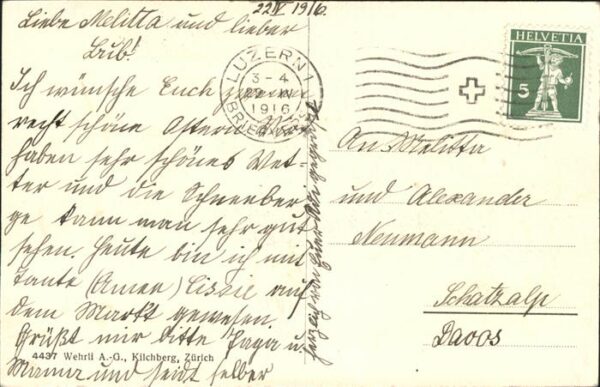 22 IV 1916.
Liebe Melitta und lieber
Bub!
Ich wünsche Euch
recht schöne Ostern. Wir
haben sehr schönes Wet-
ter und die Schneeber-
ge kann man sehr gut
sehen. Heute bin ich mit
Tante (Amen) Cissie auf
dem Markt gewesen.
Grüßt mir bitte Papa u.
Mama und seidt selber
herzlich von gegrüßt
4437 Wehrli A.-G., Kilchberg, Zürich
LUZERN 1
3-4
22 IV
1916
HELVETIA
5
An Melitta
und Alexander
Neumann
Schatzalp
Davos